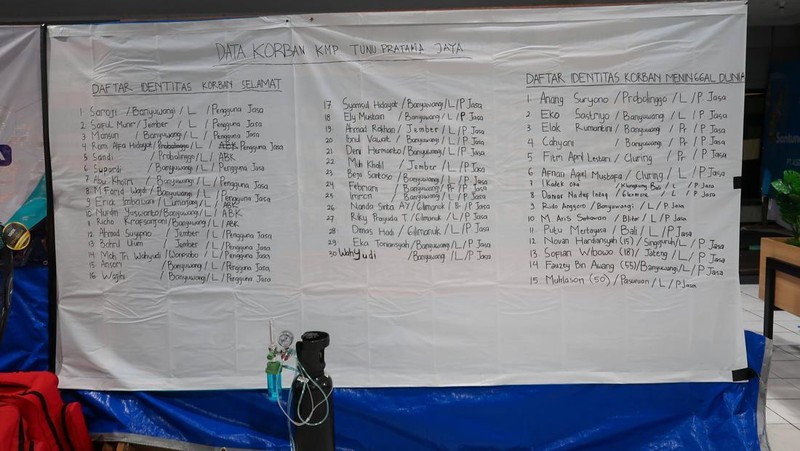 DATA KORBAN KMP TUNU PRATAMA JAYA
DAFTAR IDENTITAS KORBAN SELAMAT
1 Saroji / Banyuwangi / L / Pengguna Jasa
2 Saiful Munir / Jember / L / Pengguna Jasa
3 Mansun / Banyuwangi / L / Pengguna Jasa
4 Romi Alfa Hidayat / Probolinggo / L / ABK Pengguna Jasa
5 Sandi / Probolinggo / L / ABK
6 Supardi / Banyuwangi / L / Pengguna Jasa
7 Abu Khoiri / Banyuwangi / L / Pengguna Jasa
8 M Farid / Banyuwangi / L / Pengguna Jasa
9 Erick Imbawani / Lumajang / L / ABK
10 Nurdin Yuswanto / Banyuwangi / L / ABK
11 Richo / Banyuwangi / L / ABK
12 Ahmad Suyipno / Jember / L / Pengguna Jasa
13 Bahrul Ulum / Jember / L / Pengguna Jasa
14 Moh Tri Wahyudi / Wonosobo / L / Pengguna Jasa
15 Ansori / Banyuwangi / L / Pengguna Jasa
16 Wajihi / Banyuwangi / L / Pengguna Jasa
17 Syamsul Hidayat / Banyuwangi / L / P Jasa
18 Ely Mustain / Banyuwangi / L / P Jasa
19 Ahmad Rokhan / Jember / L / P Jasa
20 Ibnul Vawait / Banyuwangi / L / P Jasa
21 Deni Hermanto / Banyuwangi / L / P Jasa
22 Muh Kholil / Jember / L / P Jasa
23 Bejo Santoso / Banyuwangi / L / P Jasa
24 Febriani / Banyuwangi / Pr / P Jasa
25 Imron / Banyuwangi / L / P Jasa
26 Nanda Sinta / Gilimanuk / P Jasa
27 Riky Prayuda T / Gilimanuk / L / P Jasa
28 Dimas Hadi / Gilimanuk / L / P Jasa
29 Eka Toniansyah / Banyuwangi / L / P Jasa
30 Wahyudi / Banyuwangi / L / P Jasa
DAFTAR IDENTITAS KORBAN MENINGGAL DUNIA
1 Anang Suryono / Probolinggo / L / P Jasa
2 Eko Sastriyo / Banyuwangi / L / P Jasa
3 Elok Rumantini / Banyuwangi / Pr / P Jasa
4 Cahyani / Banyuwangi / Pr / P Jasa
5 Fitri April Lestari / Cluring / Pr / P Jasa
6 Afnan Aqiel Mustafa / Cluring / L / P Jasa
7 I Kadek Oka / Klungkung Bali / L / P Jasa
8 Daniar Nadief / Glenmore / L / P Jasa
9 Rudo Anggoro / Banyuwangi / L / P Jasa
10 M. Aris Setiawan / Blitar / L / P Jasa
11 Putu Mertayasa / Bali / L / P Jasa
12 Novan Hardiansyah (15) / Singojuruh / L / P Jasa
13 Sofian Wibowo (18) / Jateng / L / P Jasa
14 Fauzey Bin Awang (55) / Banyuwangi / L / P Jasa
15 Muhlason (50) / Pasuruan / L / P Jasa